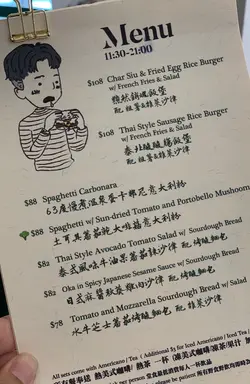 Menu
11:30-21:00
$108 Char Siu & Fried Egg Rice Burger
w/ French Fries & Salad
黯然銷魂飯堡
配 粗薯&雜菜沙律
$108 Thai Style Sausage Rice Burger
w/ French Fries & Salad
泰北酸酸腸飯堡
配 粗薯&雜菜沙律
$88 Spaghetti Carbonara
63度慢煮温泉蛋卡邦尼意大利粉
$88 Spaghetti w/ Sun-dried Tomato and Portobello Mushroom
土耳其蕃茄乾大啡菇意大利粉
$82 Thai Style Avocado Tomato Salad w/ Sourdough Bread
泰式風味牛油果蕃茄沙律 配 烤酸麵包
$82 Oka in Spicy Japanese Sesame Sauce w/ Sourdough Bread
日式麻醬秋葵 配 烤酸麵包
$78 Tomato and Mozzarella Sourdough Bread w/ Salad
水牛芝士蕃茄烤酸麵包 配 雜菜沙律
All sets come with Americano / Tea ( Additional $5 for Iced Americano / Iced Tea /
熱美式咖啡/熱茶 一杯
per person 每位最低消費每人一杯飲品